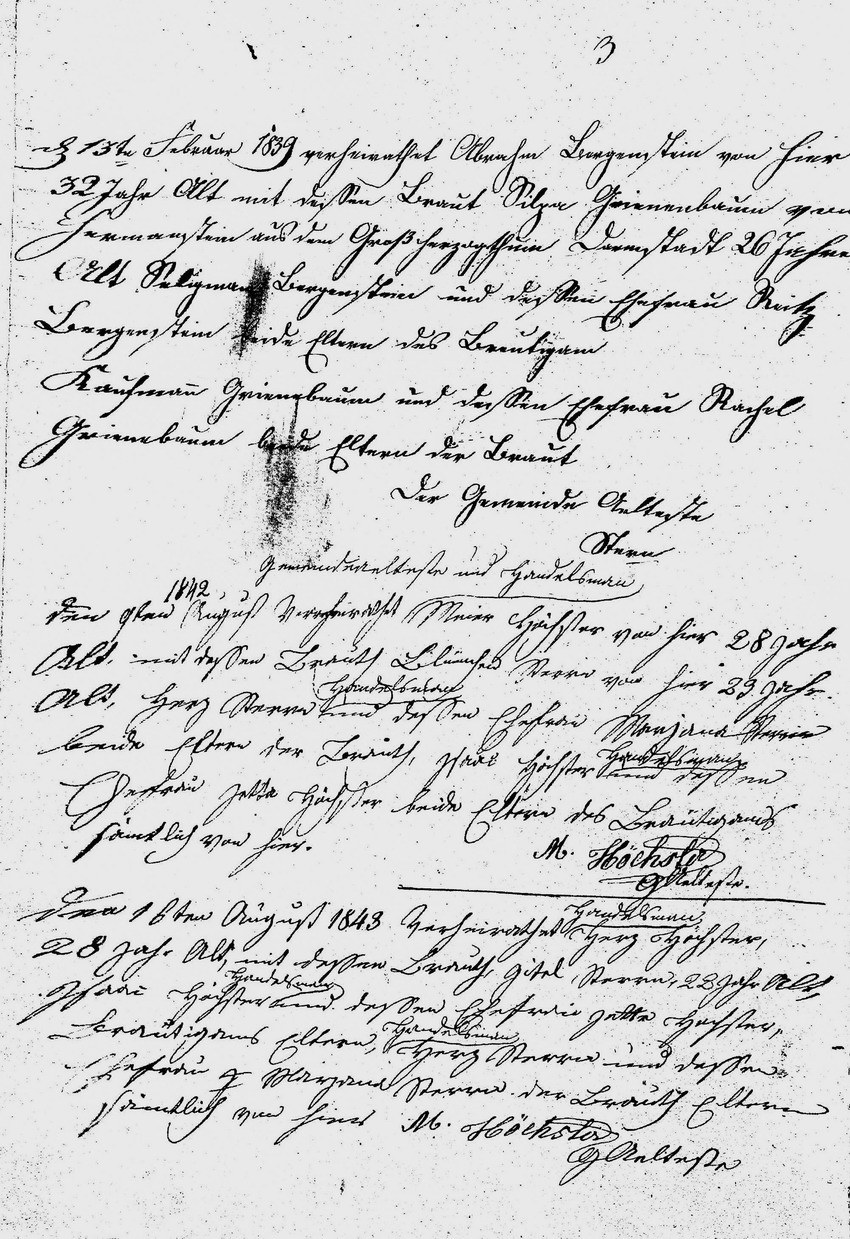 3
d 13te Februar 1839 verheirathet Abrahm Bergenstein von hier
32 Jahr Alt mit dessen Braut Silpa Grienenbaum von
Hermanstein aus dem Großherzogthum Darmstadt 26 Jahre
Alt Seligman Bergenstein und dessen Ehefrau Reitz
Bergenstein beide Eltern des Breutigam
Kaufmann Grienebaum und dessen Ehefrau Rachel
Grienebaum beide Eltern der Braut
Der Gemeinde Aelteste
Stern
Gemeindeaelteste und Handelsman
1842
den 9ten August Verheirathet Meier Höchster von hier 28 Jahr
Alt. mit dessen Brauth Blümchen Sterrn von hier 23 Jahr
Handelsman
Alt, Herz Sterrn und dessen Ehefrau Marjana Sterrn
Handelsman
beide Eltern der Brauth, Isaac Höchster und dessen
Ehefrau Jetta Höchster beide Eltern des Bräutigams
sämtlich von hier.
M. Höchster
GAelteste.
Handelsman
den 16ten August 1843 Verheirathet Herz Höchster,
28 Jahr Alt, mit dessen Brauth, Gitel Sterrn, 22 Jahr Alt,
Handelsman
Isaac Höchster und dessen Ehefrau Jette Höchster,
Handelsman
Bräutigams Eltern, Herz Sterrn und dessen
Ehefrau Marjana Sterrn der Brauth Eltern
sämtlich von hier M. Höchster
GAelteste